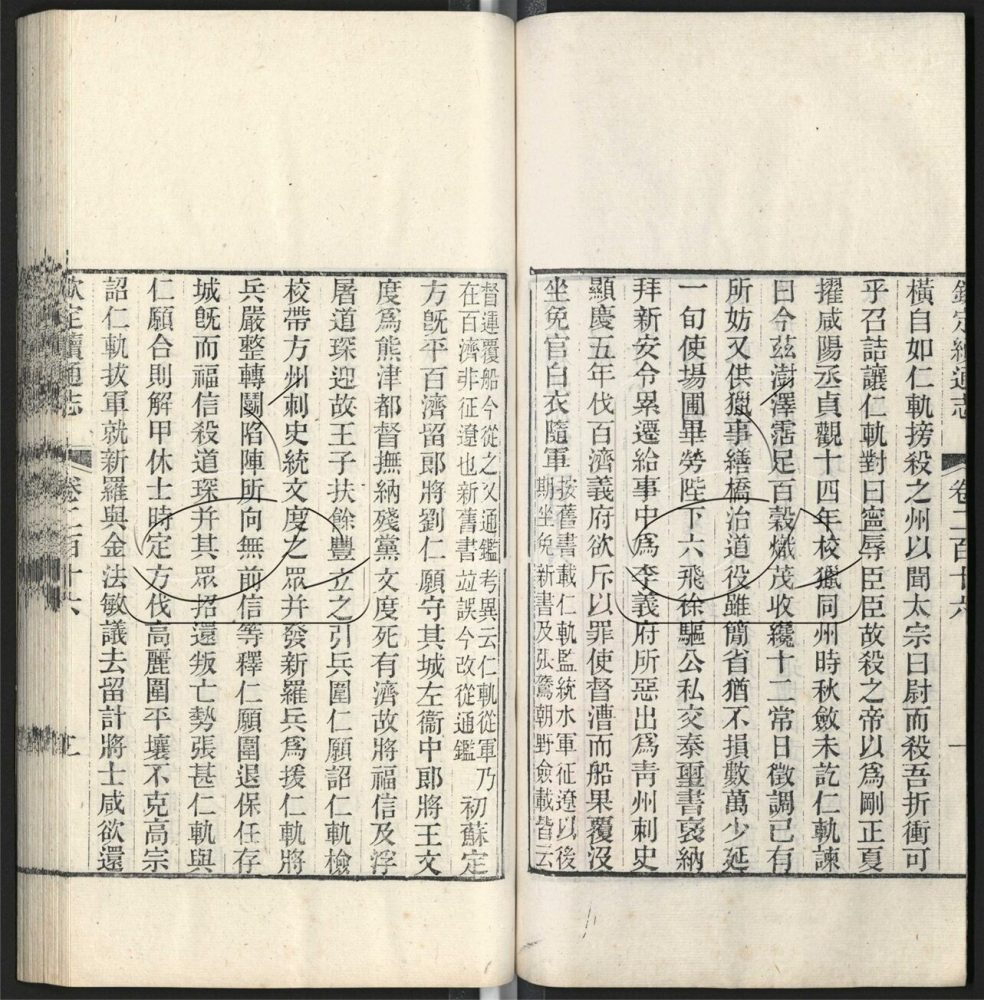 欽定續通志 卷二百十六
橫自如仁軌搒殺之州以聞太宗曰尉而殺吾折衝可
乎召詰讓仁軌對曰寧辱臣臣故殺之帝以爲剛正更
擢咸陽丞貞觀十四年校獵同州時秋斂未訖仁軌諫
曰今茲澍澤霑足百穀熾茂收纔十二常日徵調已有
所妨又供獵事繕橋治道役雖簡省猶不損數萬少延
一旬使場圃畢勞陛下六飛徐驅公私交泰璽書褒納
拜新安令累遷給事中爲李義府所惡出爲靑州刺史
顯慶五年伐百濟義府欲斥以罪使督漕而船果覆沒
坐免官白衣隨軍
按舊書載仁軌監統水軍征遼以後
期坐免新書及張鷟朝野僉載皆云
督運覆船今從之又通鑑考異云仁軌從軍乃
在百濟非征遼也新舊書竝誤今改從通鑑
初蘇定
方旣平百濟留郎將劉仁願守其城左衞中郎將王文
度爲熊津都督撫納殘黨文度死有濟故將福信及浮
屠道琛迎故王子扶餘豐立之引兵圍仁願詔仁軌檢
校帶方州刺史統文度之眾并發新羅兵爲援仁軌將
兵嚴整轉鬭陷陣所向無前信等釋仁願圍退保任存
城旣而福信殺道琛并其眾招還叛亡勢張甚仁軌與
仁願合則解甲休士時定方伐高麗圍平壤不克高宗
詔仁軌拔軍就新羅與金法敏議去留計將士咸欲還
欽定續通志 卷二百十六